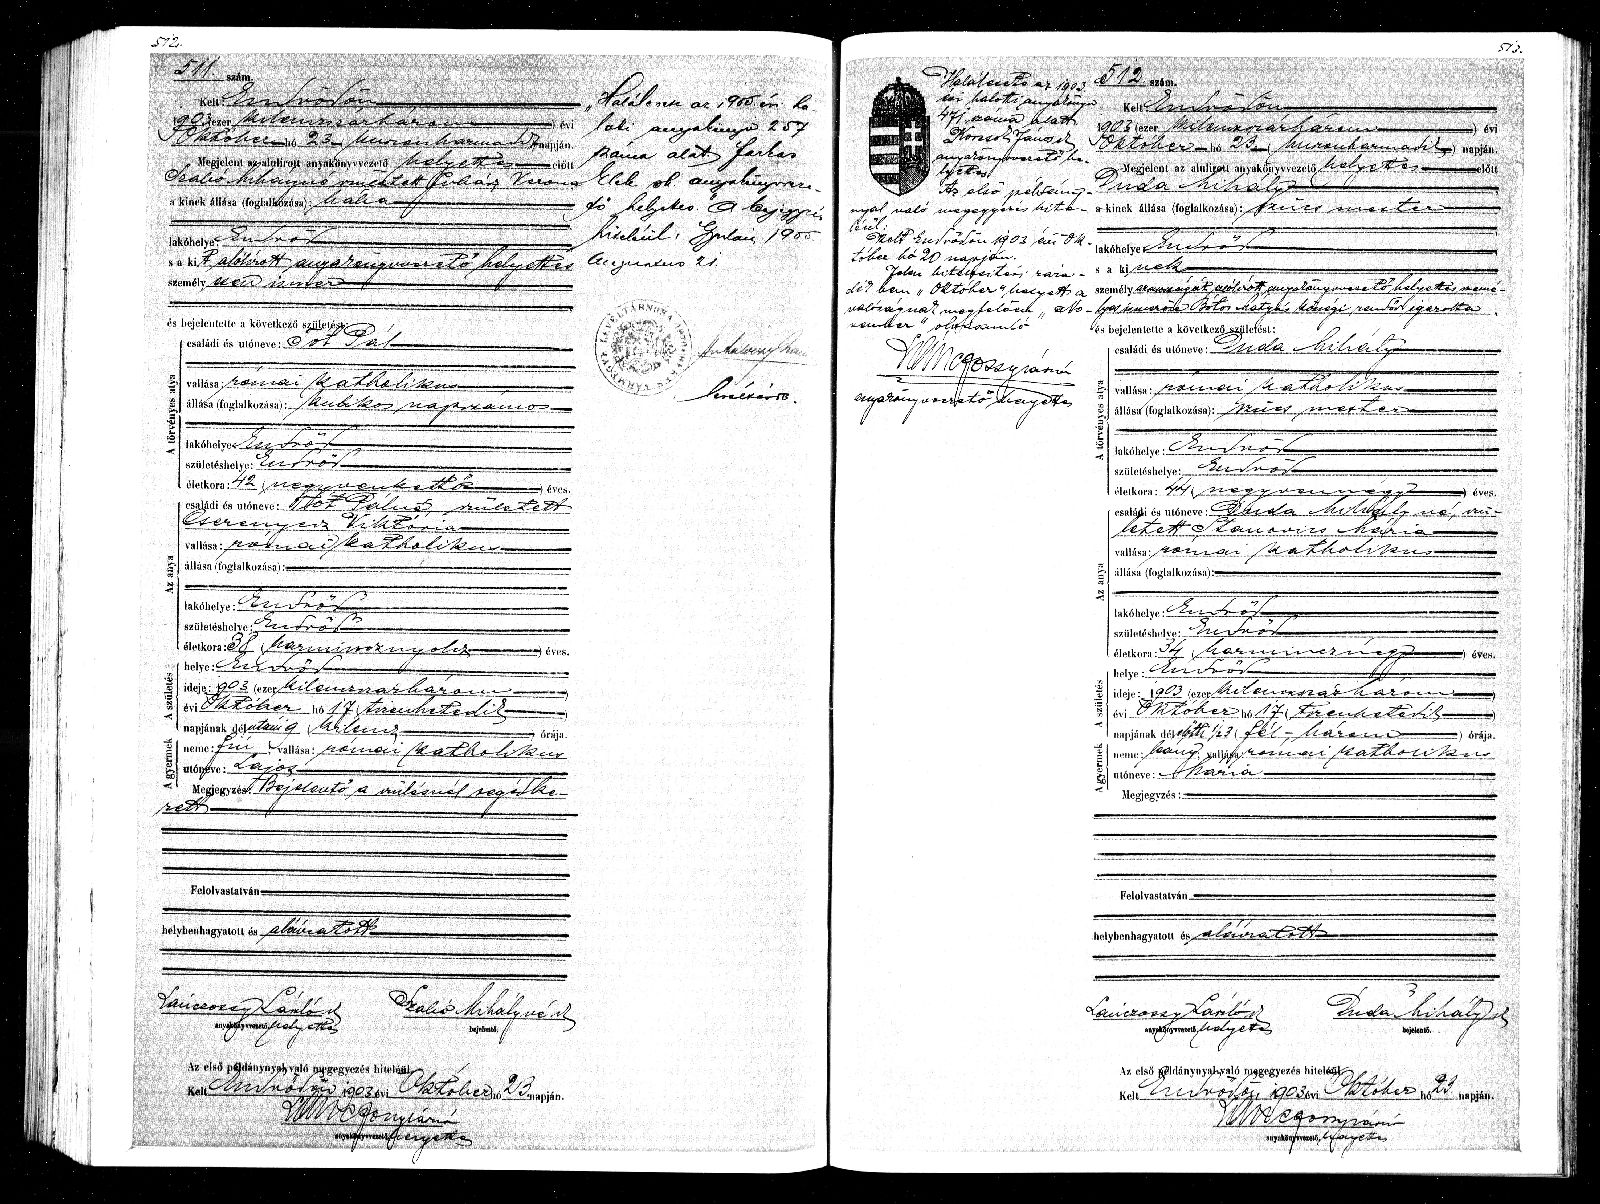 512.
511. szám.
Kelt Endrődön
1903 (ezer kilenczszázhárom) évi
Október hó 23 (huszonharmadik) napján.
Megjelent az alulirott anyakönyvvezető helyettes előtt
Szabó Mihályné született Juhász Verona
a kinek állása (foglalkozása): bába
lakóhelye: Endrőd
s a kit alólirott anyakönyvvezető helyettes
személyesen ismer
és bejelentette a következő születést:
A törvényes atya
családi és utóneve: Tót Pál
vallása: római katholikus
állása (foglalkozása): kubikos napszámos
lakóhelye: Endrőd
születéshelye: Endrőd
életkora: 42 (negyvenkettő) éves.
Az anya
családi és utóneve: Tót Pálné, született
Cserenyecz Viktória
vallása: római katholikus
állása (foglalkozása):
lakóhelye: Endrőd
születéshelye: Endrőd
életkora: 38 (harmincznyolcz) éves.
A születés
helye: Endrőd
ideje: 1903 (ezer kilenczszázhárom)
évi Október hó 17 (tizenhetedik)
napjának délután 9 (kilencz) órája.
A gyermek
neme: fiú vallása: római katholikus
utóneve: Lajos
Megjegyzés: Bejelentő a szülésnél segédke-
zett
Felolvastatván
helybenhagyatott és aláiratott
Lánczossy László
anyakönyvvezető, helyettes
Szabó Mihályné
bejelentő.
Az első példánynyal való megegyezés hiteléül.
Kelt Endrődön 1903 évi Október hó 23 napján.
anyakönyvvezető, helyettes
Halálesete az 1905 évi ha-
láloki anyakönyv 257
száma alatt Farkas
Elek sk. anyakönyvveze-
tő helyettes. A bejegyzés
hiteléül: Gyulán, 1905
Augusztus 21.
levéltárnok.
513.
Haláleseto az 1903.
évi halotti anyakönyv
471 száma alatt
János
anyakönyvvezető he-
lyettes.
Az első példány-
nyal való megegyezés hite-
léül.
Kelt Endrődön 1903 évi Ok-
tóber hó 20 napján.
Jelen hitelesitési zára-
dékban „Október" helyett a
valóságnak megfelelően „No-
vember" olvasandó
anyakönyvvezető helyettes
512 szám.
Kelt Endrődön
1903 (ezer kilenczszázhárom) évi
Október hó 23 (huszonharmadik) napján.
Megjelent az alulirott anyakönyvvezető helyettes előtt
Duda Mihály
a kinek állása (foglalkozása): szűcs mester
lakóhelye: Endrőd
s a kinek
személyazonosságát alólirott anyakönyvvezető helyettes szemé-
lyesen ismerőse Bótos Mátyás községi rendőr igazolta
és bejelentette a következő születést:
A törvényes atya
családi és utóneve: Duda Mihály
vallása: római katholikus
állása (foglalkozása): szűcs mester
lakóhelye: Endrőd
születéshelye: Endrőd
életkora: 44 (negyvennégy) éves.
Az anya
családi és utóneve: Duda Mihályné, szü-
letett Stanovics Mária
vallása: római katholikus
állása (foglalkozása):
lakóhelye: Endrőd
születéshelye: Endrőd
életkora: 34 (harmincznégy) éves.
A születés
helye: Endrőd
ideje: 1903 (ezer kilenczszázhárom)
évi Október hó 17 (tizenhetedik)
napjának délelőtti 1/23 (fél-három) órája.
A gyermek
neme: leány vallása: római katholikus
utóneve: Mária
Megjegyzés:
Felolvastatván
helybenhagyatott és aláiratott
Lánczossy László
anyakönyvvezető, helyettes
Duda Mihály
bejelentő.
Az első példánynyal való megegyezés hiteléül.
Kelt Endrődön 1903 évi Október hó 23 napján.
anyakönyvvezető, helyettes